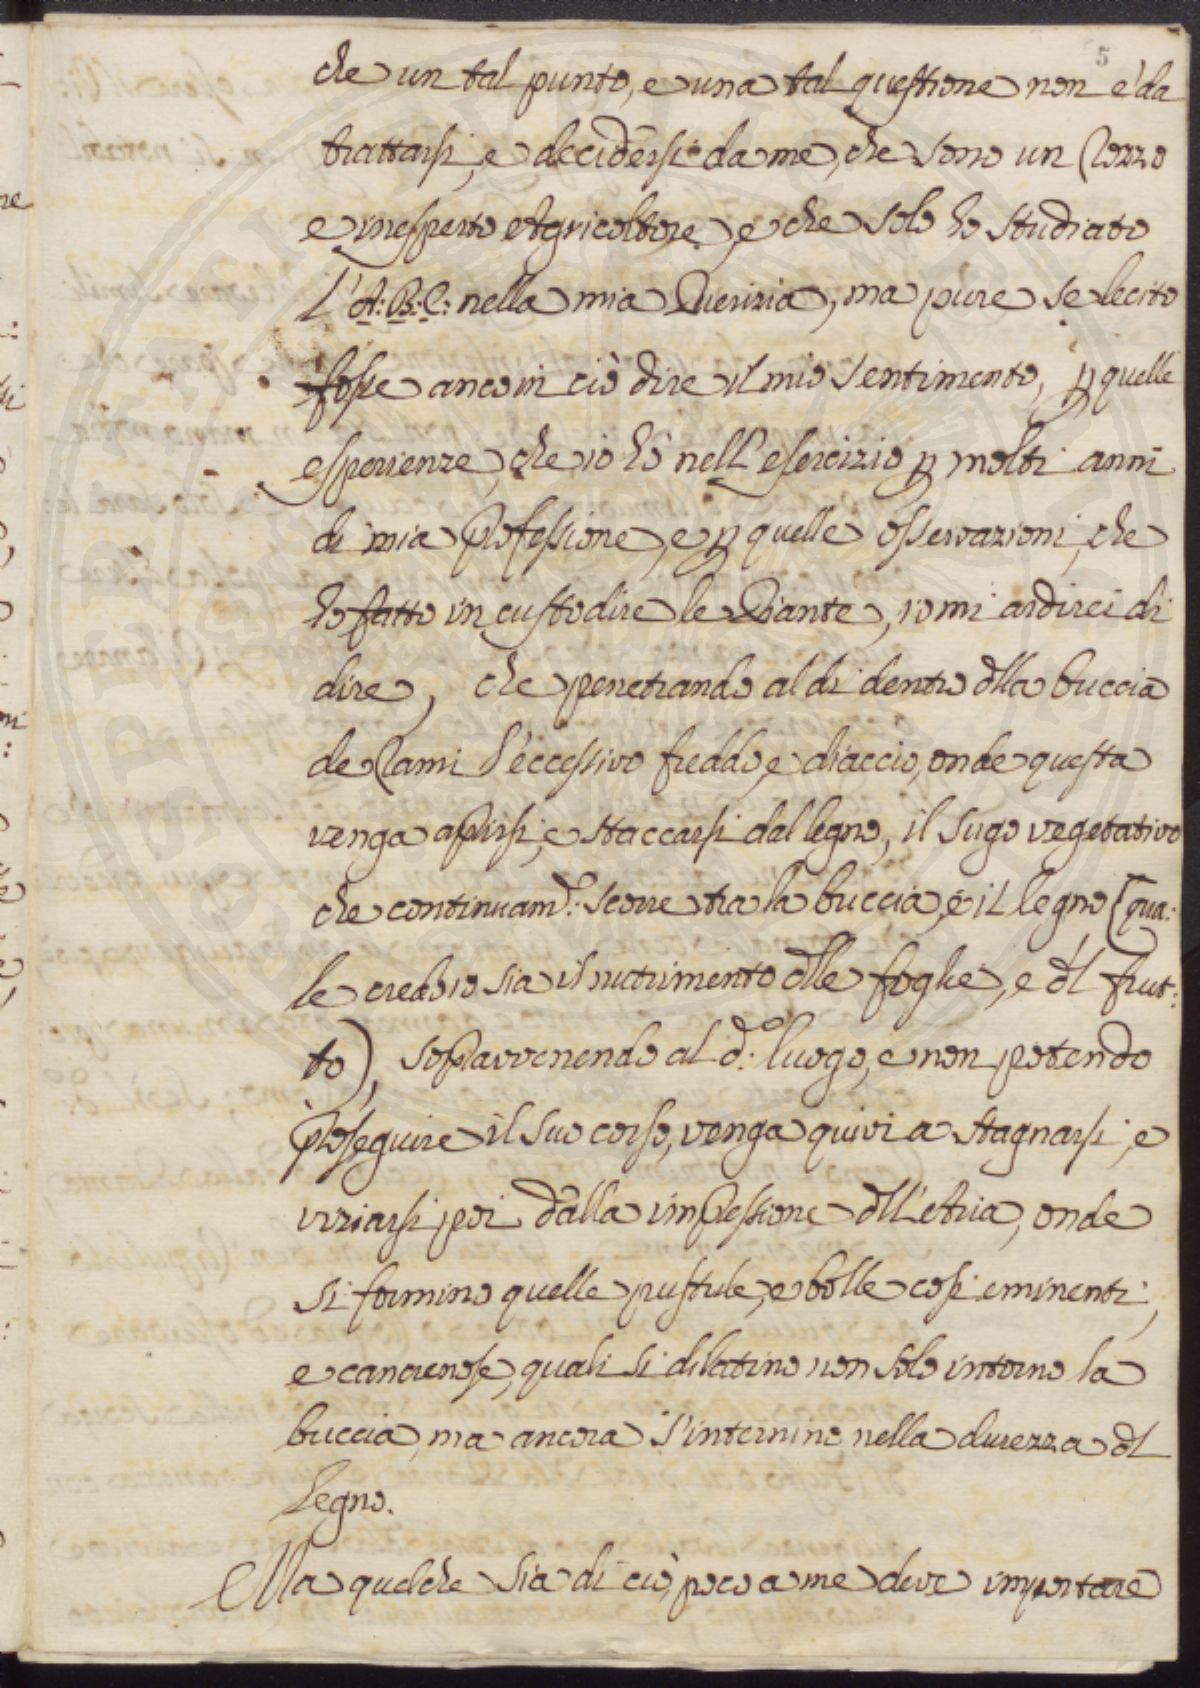 5
che un tal punto, e una tal questione non è da
trattarsi, e decidersi da me, che sono un rozzo
e inesperto Agricoltore, e che solo ho studiato
l'A: B: C: nella mia Querizia, ma pure se lecito
fosse anco in ciò dire il mio sentimento, p quelle
esperienze, che io hò nell'esercizio p molti anni
di mia professione, e p quelle osservazioni, che
ho fatto in custodire le Piante, io mi ardirei di
dire, che penetrando al di dentro dlla buccia
de rami l'eccessivo freddo, e diaccio, onde questa
venga aprirsi, e staccarsi dal legno, il sugo vegetativo
che continuamte: scorre tra la buccia, e il legno (qua:
le credo io sia il nutrimento dlle foglie, e dl frut:
to), sopravvenendo al do: luogo, e non potendo
proseguire il suo corso, venga quivi a stagnarsi, e
viziarsi poi dalla impressione dll'Aria, onde
si formino quelle pustule, e bolle così eminenti,
e cancrenose, quali si dilatino non solo intorno la
buccia, ma ancora s'internino nella durezza dl
legno.
Ma quelche sia di ciò, poco a me deve importare